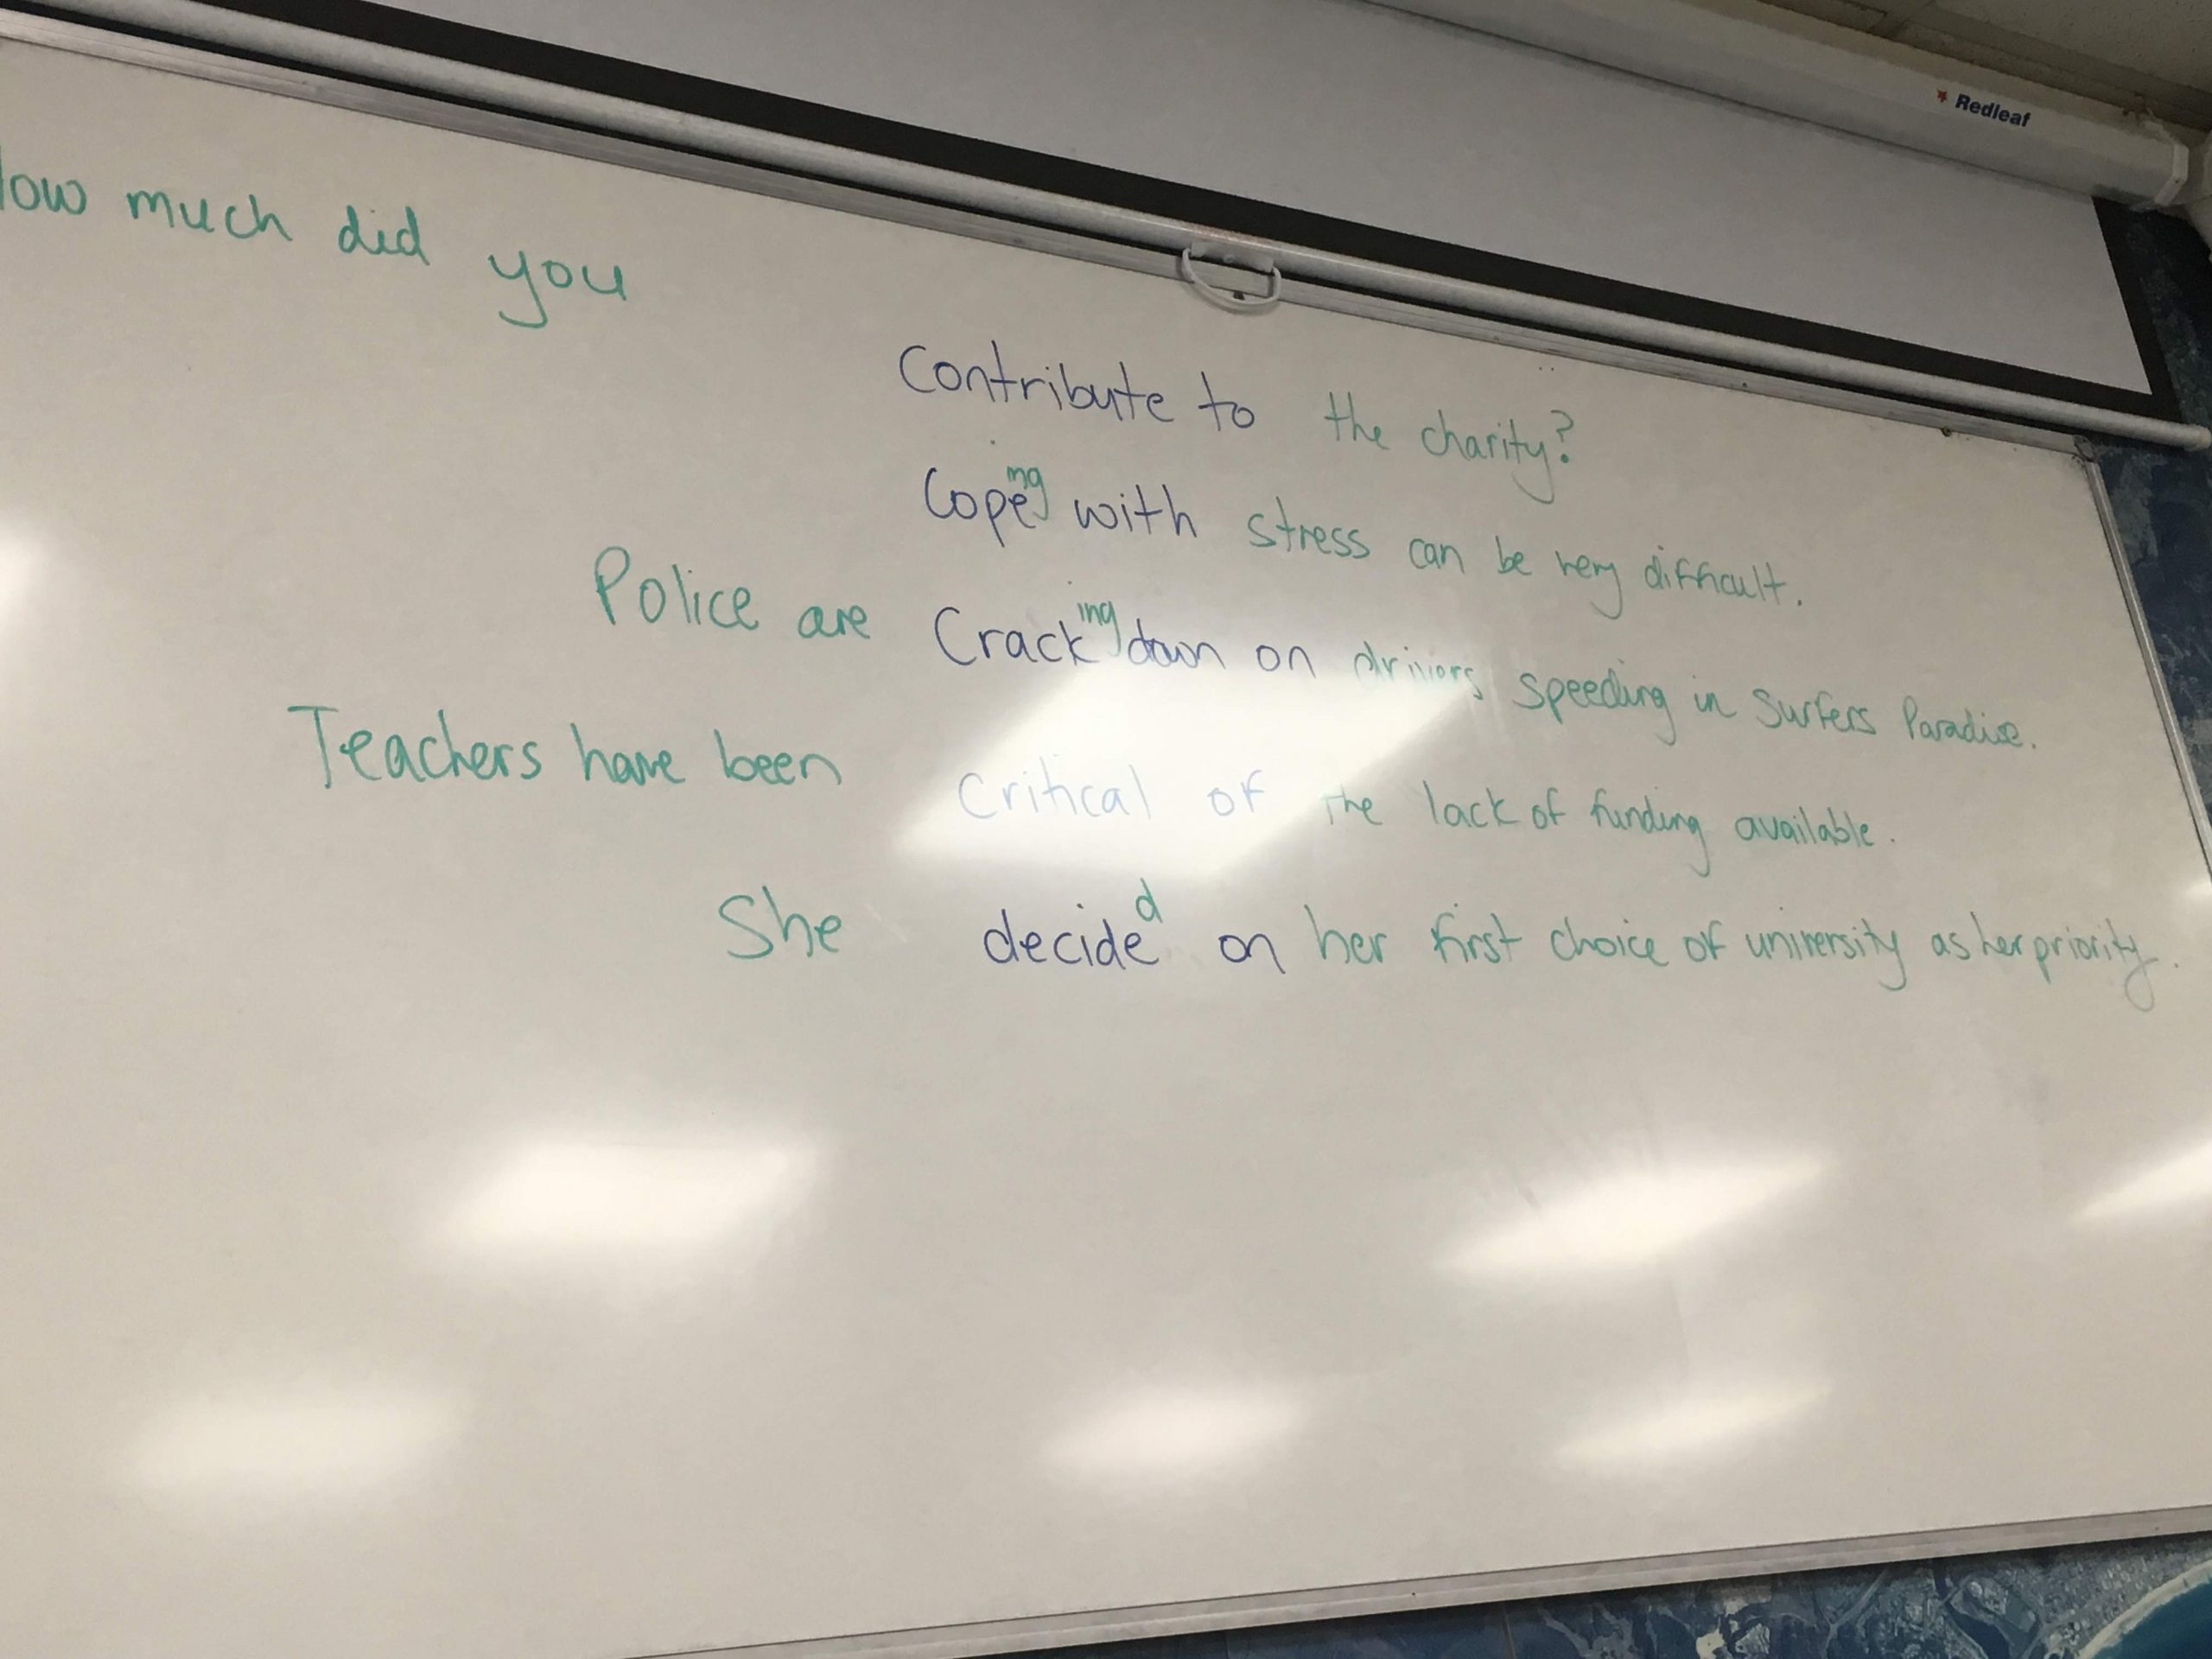 Redleaf
How much did you
Contribute to the charity?
Copeing with stress can be very difficult.
Police are Cracking down on drivers speeding in Surfers Paradise.
Teachers have been Critical of the lack of funding available.
She decided on her first choice of university as her priority.